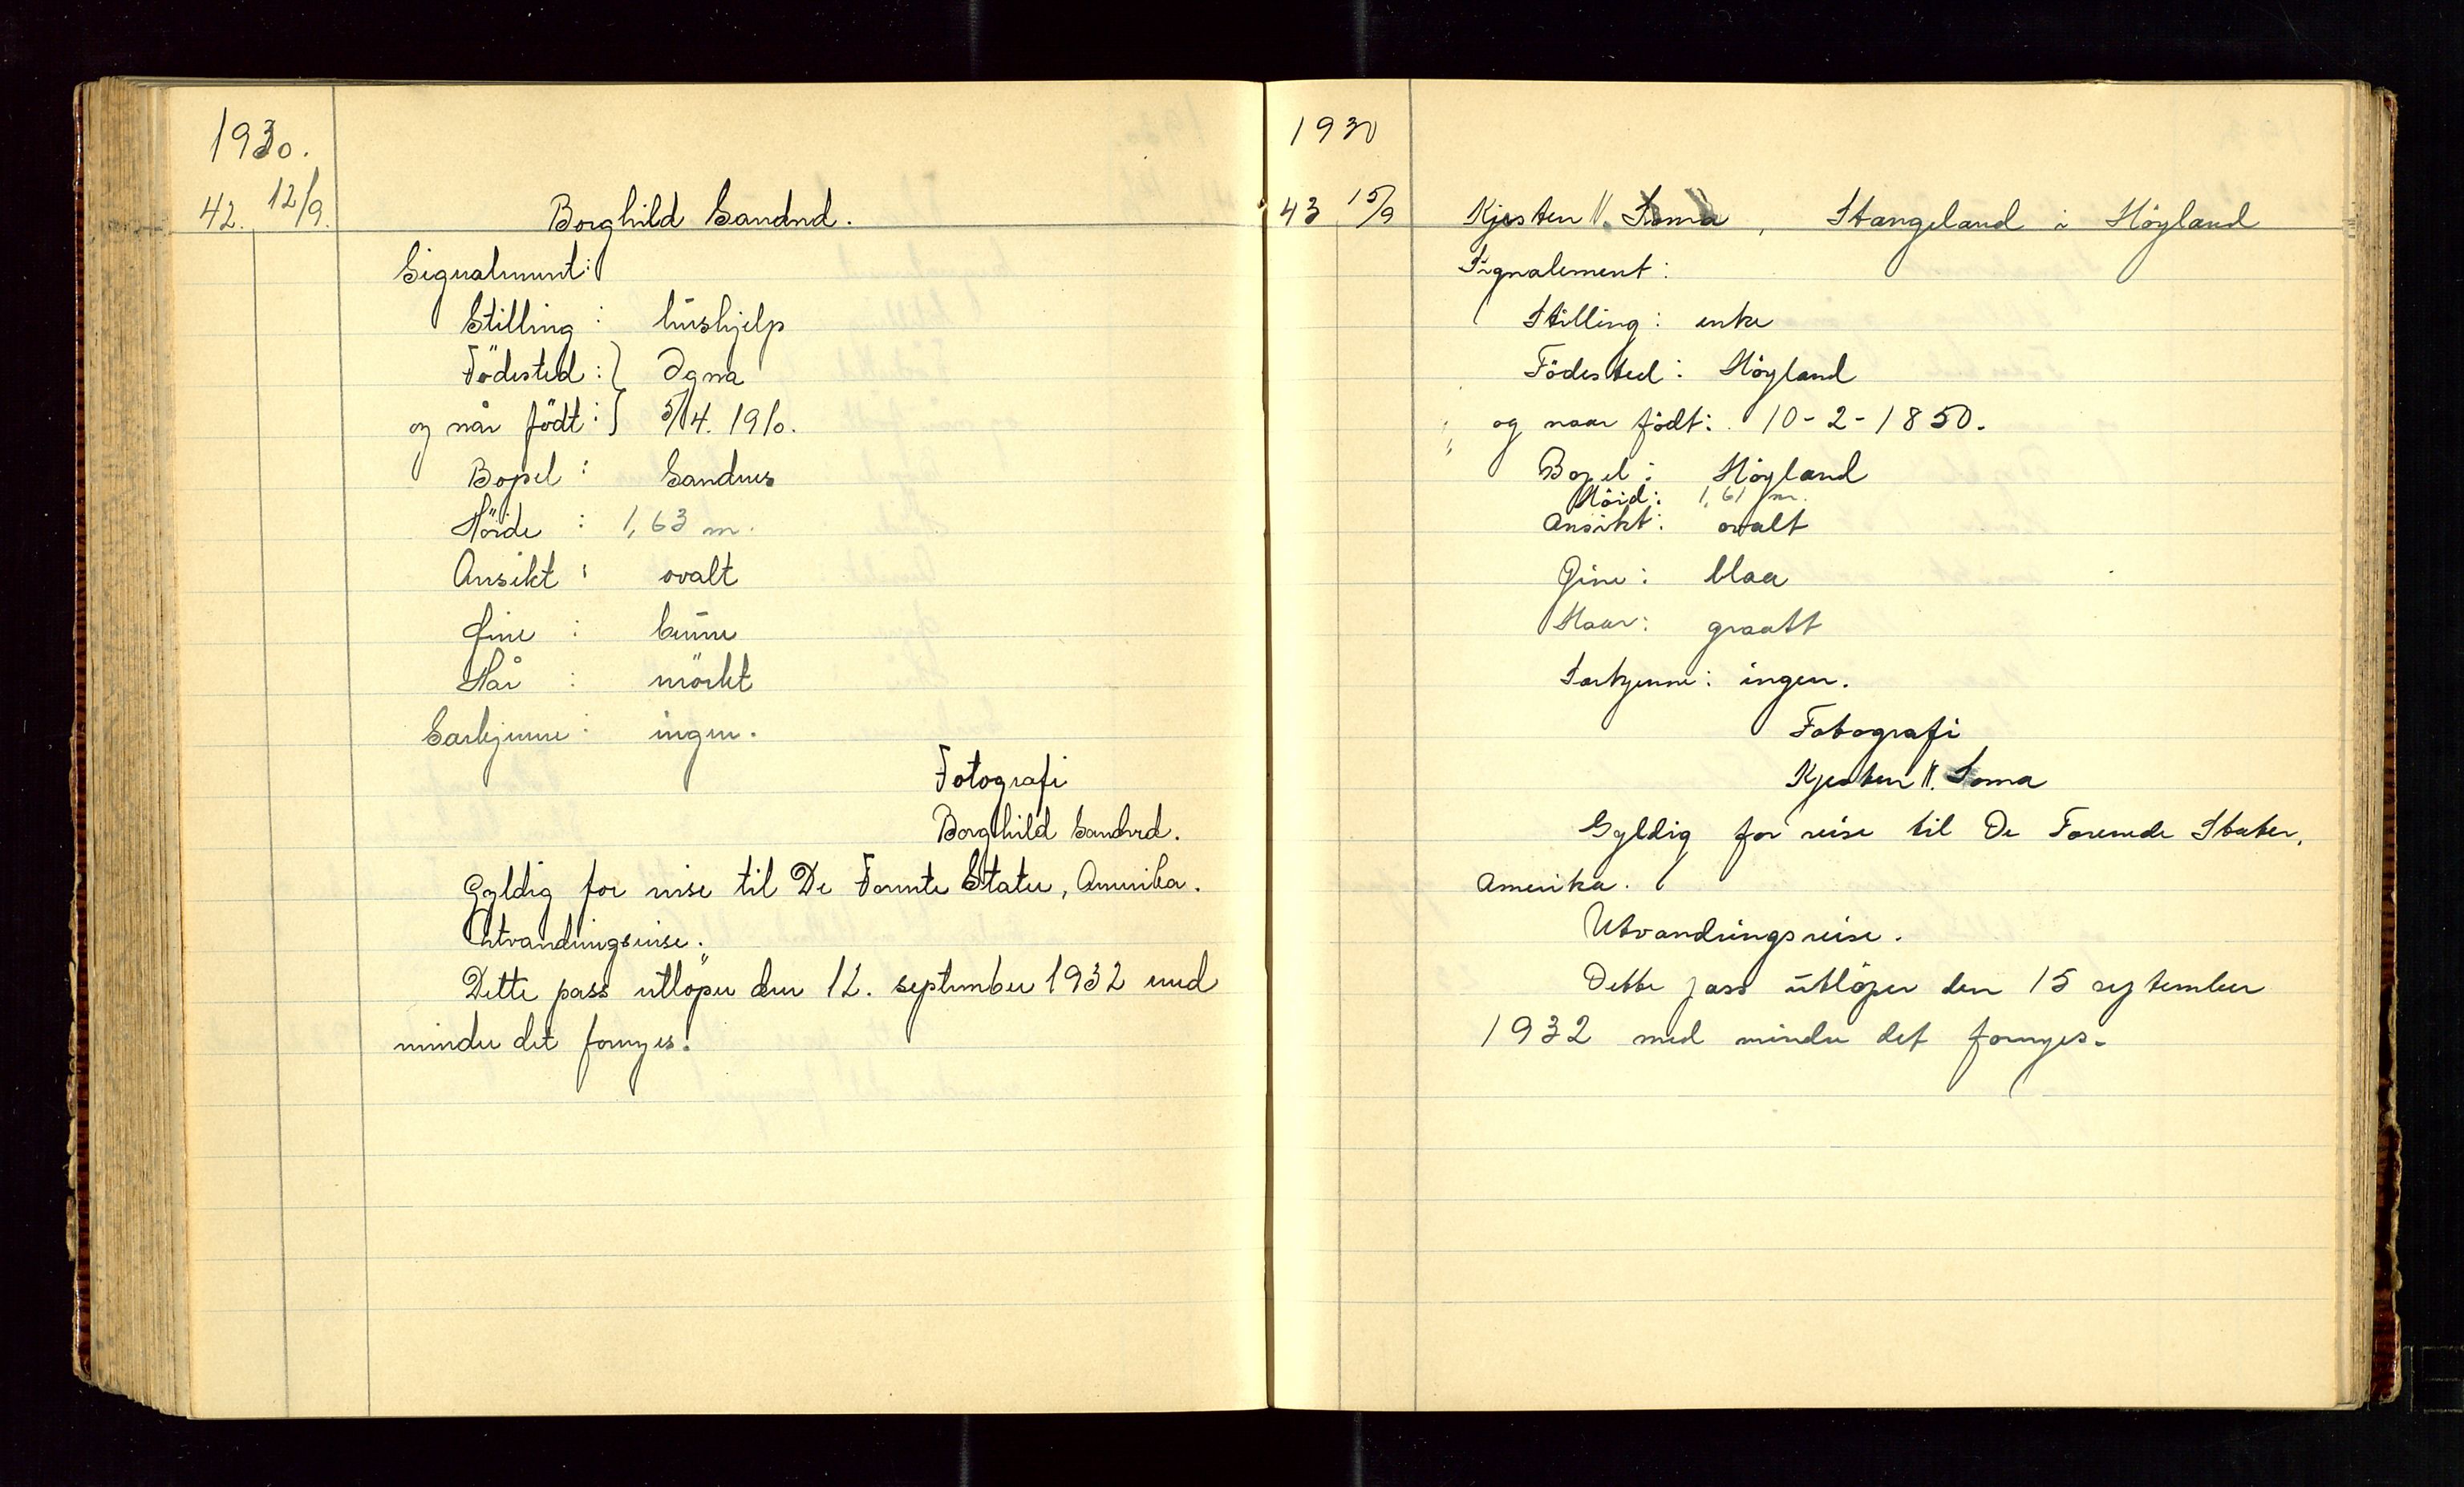 1930.
42. 12/9. Borghild Sandnd.
Signalement:
Stilling : hushjelp
Födested : } Ogna
og når födt : } 5/4. 1910.
Bopel : Sandnes
Höide : 1,63 m.
Ansikt : ovalt
Öine : brune
Hår : mörkt
Særkjenne : ingen.
Fotografi
Borghild Sandvd.
Gyldig for reise til De Forente Stater, Amerika.
Utvandringsreise.
Dette pass utlöper den 12. september 1932 med
mindre det fornyes.
1930
43 15/9 Kjesten V. Soma, Stangeland i Höyland
Signalement:
Stilling: enke
Födested: Höyland
og naar födt: 10-2-1850.
Bopel: Höyland
Höid: 1,61 m.
Ansikt: ovalt
Öine: blaa
Haar: graatt
Særkjenne: ingen.
Fotografi
Kjesten V. Soma
Gyldig for reise til De Forenede Stater,
Amerika.
Utvandringsreise.
Dette pass utlöper den 15 september
1932 med mindre det fornyes.